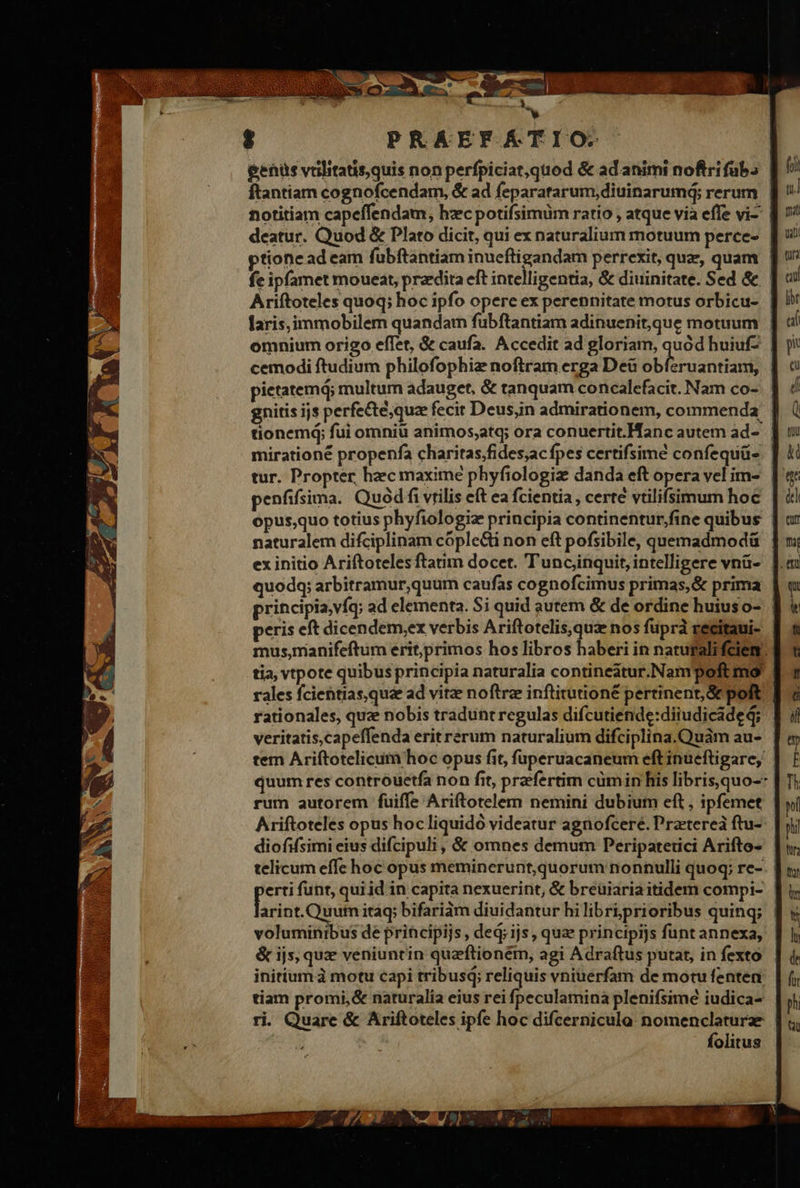 8 PRAEFATIO.
genus vtilitatis,quis non perſpiciat,quod & ad animi noſtri ſubſ
ſtantiam cognoſcendam, & ad ſeparatarum,diuinarumq́; rerum
notitiam capeſſendam, hæc potiſsimùm ratio, atque via eſſe vi-
deatur. Quod & Plato dicit, qui ex naturalium motuum perce-
ptione ad eam ſubſtantiam inueſtigandam perrexit, quæ, quam
ſe ipſam et moueat, prædita eſt intelligentia, & diuinitate. Sed &
Ariſtoteles quoq; hoc ipſo opere ex perennitate motus orbicu-
laris,immobilem quandam ſubſtantiam adinuenit,que motuum
omnium origo eſſet, & cauſa. Accedit ad gloriam, quòd huiuſ-
cemodi ſtudium philoſophiæ noſtram erga Deũ obſeruantiam,
pietatemq́; multum adauget, & tanquam concalefacit. Nam co-
gnitis ijs perfectè,quæ fecit Deus,in admirationem, commenda
tionemq́; ſui omniũ animos,atq; ora conuertit.Hanc autem ad-
mirationẽ propenſa charitas,fides,ac ſpes certiſsimè conſequũ-
tur. Propter hæc maximè phyſiologiæ danda eſt opera vel im-
penſiſsima. Quòd ſi vtilis eſt ea ſcientia, certè vtiliſsimum hoc
opus,quo totius phyſiologiæ principia continentur,ſine quibus
naturalem diſciplinam cõplecti non eſt poſsibile, quemadmodũ
ex initio Ariſtoteles ſtatim docet. Tunc,inquit,intelligere vnũ-
quodq; arbitramur,quum cauſas cognoſcimus primas,& prima
principia,vſq; ad elementa. Si quid autem & de ordine huius o-
peris eſt dicendem,ex verbis Ariſtotelis,quæ nos ſuprà recitaui-
mus,manifeſtum erit,primos hos libros haberi in naturali ſcien
tia, vtpote quibus principia naturalia contineãtur.Nam poſt mo
rales ſcientias,quæ ad vitæ noſtræ inſtitutionẽ pertinent,& poſt
rationales, quæ nobis tradunt regulas diſcutiendę:diiudicãdeq́;
veritatis,capeſſenda erit rerum naturalium diſciplina.Quàm au-
tem Ariſtotelicum hoc opus ſit, ſuperuacaneum eſt inueſtigare,
quum res controuerſa non ſit, præſertim cùm in his libris,quo-
rum autorem fuiſſe Ariſtotelem nemini dubium eſt, ipſemet
Ariſtoteles opus hoc liquidò videatur agnoſcere. Prætereà ſtu-
dioſiſsimi eius diſcipuli, & omnes demum Peripatetici Ariſto-
telicum eſſe hoc opus meminerunt,quorum nonnulli quoq; re-
perti ſunt, qui id in capita nexuerint, & breuiaria itidem compi-
larint.Quum itaq; bifariàm diuidantur hi libri,prioribus quinq;
voluminibus de principijs, deq́; ijs, quæ principijs ſunt annexa,
& ijs, quæ veniunt in quæſtionem, agi Adraſtus putat, in ſexto
initium à motu capi tribusq́; reliquis vniuerſam de motu ſenten
tiam promi,& naturalia eius rei ſpeculamina pleniſsimè iudica-
ri. Quare & Ariſtoteles ipſe hoc diſcerniculo nomenclaturæ
ſolitus